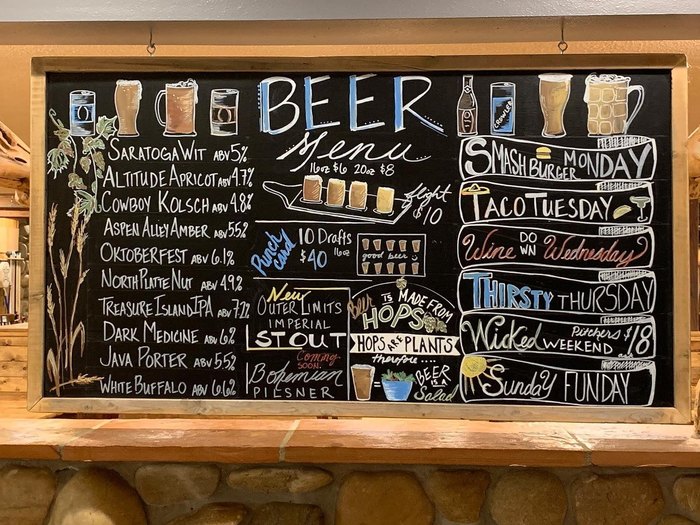 BEER
Menu
16oz $6 20oz $8
flight
$10
SARATOGA WIT ABV 5%
ALTITUDE APRICOT ABV 4.7%
COWBOY KOLSCH ABV 4.8%
ASPEN ALLEY AMBER ABV 5.5%
OKTOBERFEST ABV 6.1%
NORTH PLATTE NUT ABV 4.9%
TREASURE ISLAND IPA ABV 7.2%
DARK MEDICINE ABV 6.2%
JAVA PORTER ABV 5.5%
WHITE BUFFALO ABV 6.6%
Punch card
10 Drafts
16oz
$40
good beer
New
OUTER LIMITS
IMPERIAL
STOUT
Coming
SOON!
Bohemian
PILSNER
Beer
IS MADE FROM
HOPS
HOPS ARE PLANTS
therefore....
=
BEER
IS A
Salad
CROWLER
SMASHBURGER MONDAY
TACO TUESDAY
Wine DOWN Wednesday
THIRSTY THURSDAY
Wicked WEEKEND Pitchers $18
Sunday FUNDAY